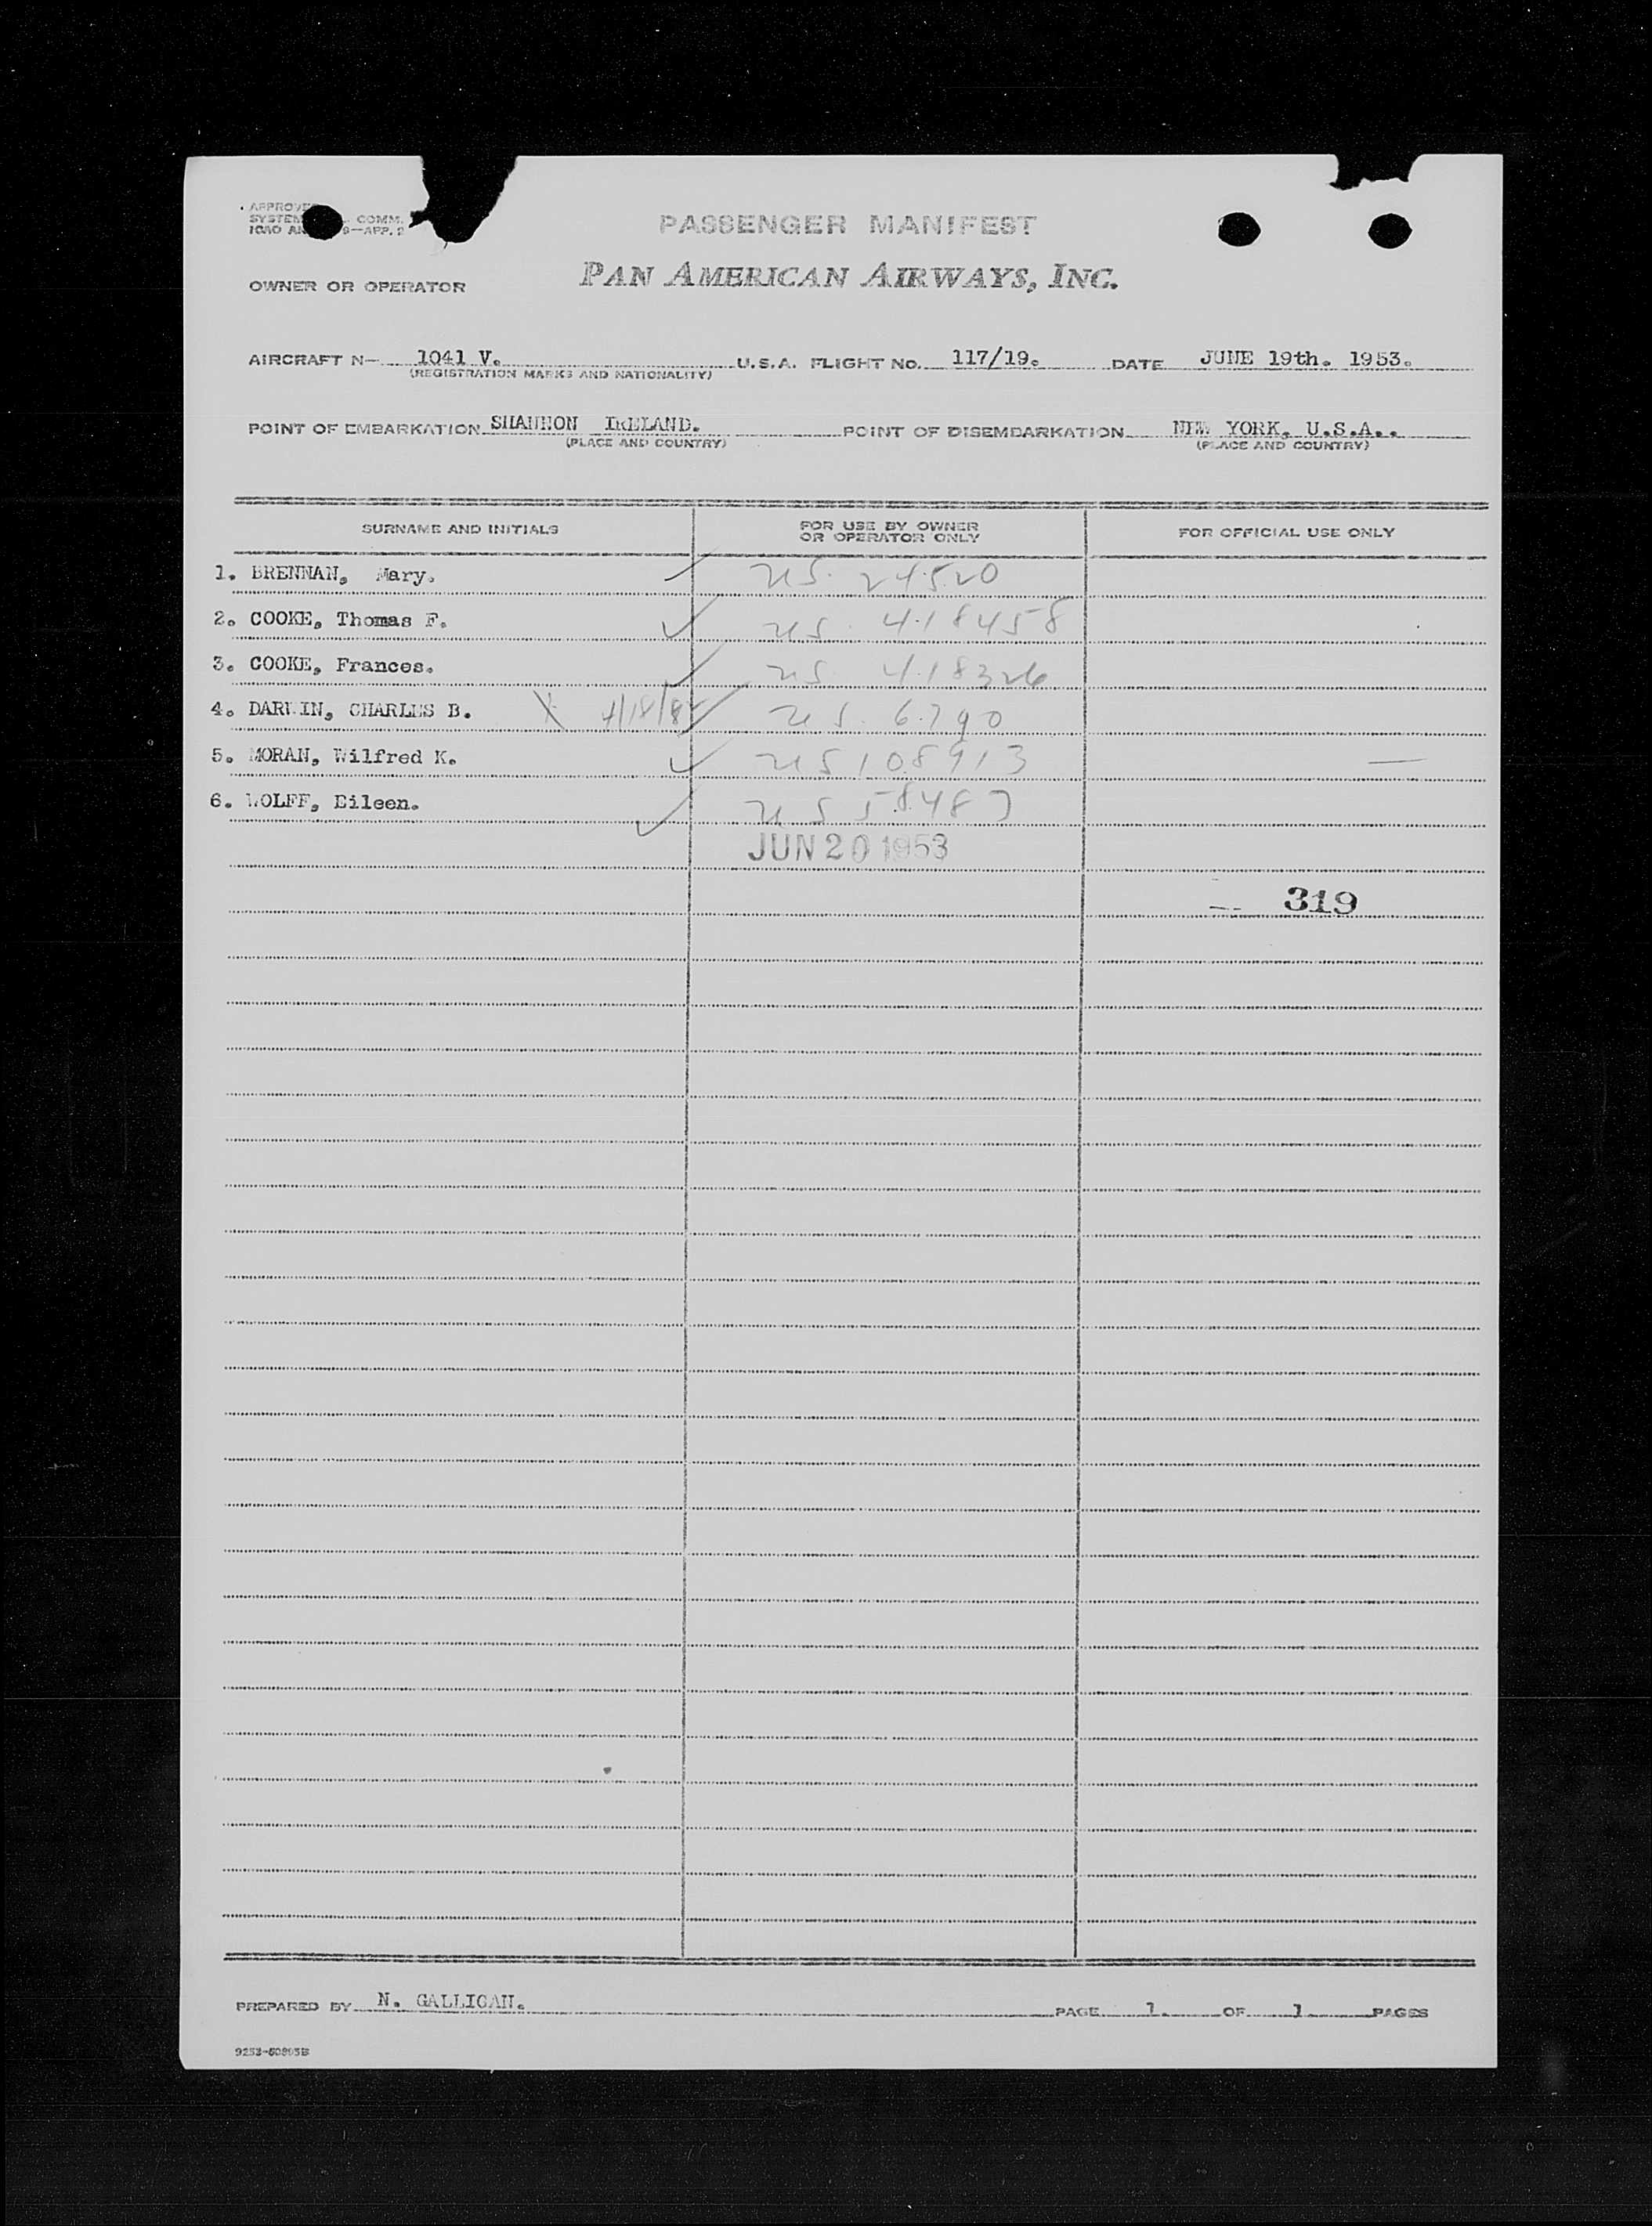 APPROVE
SYSTEM COMM.
ICAO AN 9—APP. 2
PASSENGER MANIFEST
PAN AMERICAN AIRWAYS, INC.
OWNER OR OPERATOR
AIRCRAFT N— 1041 V. U.S.A. FLIGHT NO. 117/19. DATE JUNE 19th. 1953.
(REGISTRATION MARKS AND NATIONALITY)
POINT OF EMBARKATION SHANNON IRELAND. POINT OF DISEMBARKATION NEW YORK, U.S.A..
(PLACE AND COUNTRY) (PLACE AND COUNTRY)
SURNAME AND INITIALS FOR USE BY OWNER OR OPERATOR ONLY FOR OFFICIAL USE ONLY
1. BRENNAN, Mary. US. 24520
2. COOKE, Thomas F. US. 418458
3. COOKE, Frances. US. 418326
4. DARWIN, CHARLES B. X US. 6790
5. MORAN, Wilfred K. US 108913
6. WOLFF, Eileen. US 58487
JUN 20 1953
319
PREPARED BY N. GALLIGAN. PAGE 1. OF 1 PAGES